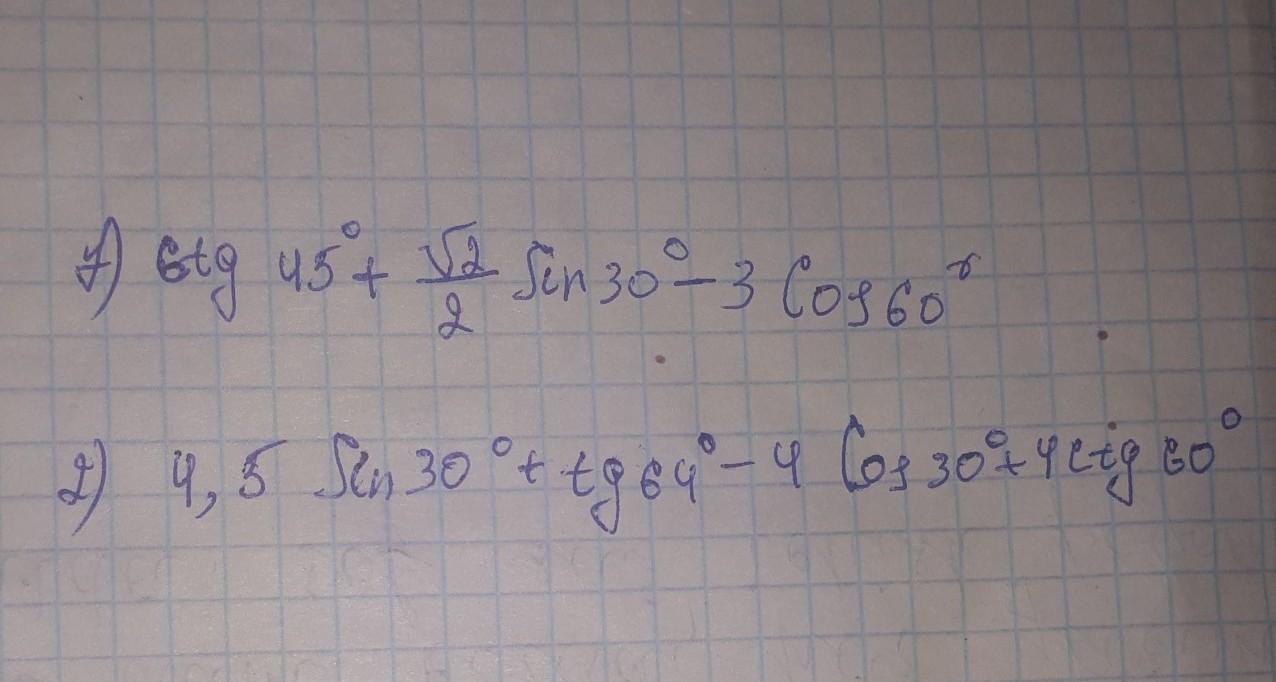 1) 6tg 45° + √2/2 Sin 30° - 3 Cos 60°
2) 4,5 Sin 30° + tg 64° - 4 Cos 30° + 4 ctg 60°